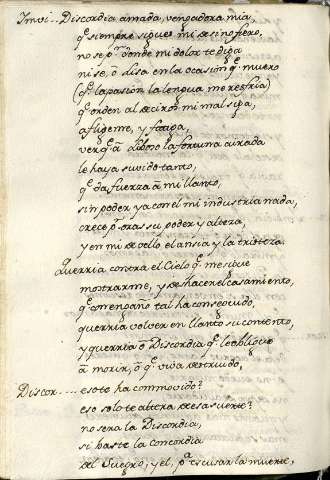 Invi... Discordia amada, vengadora mia,
q.e siempre sigues mi desino fiero,
no se p.r donde mi dolor te diga
ni se, ò Diosa en la ocasion q.e muero
(q.e la pasión la lengua me resfria)
q.e orden al deciros mi mal siga,
afligeme, y fatiga,
ver q.e à la fortuna airada
le haya suvido tanto,
q.e da fuerza à mi llanto,
sin poder ya con el mi industria nada,
crece p.r oras su poder y alteza,
y en mi de vello el ansia y la tristeza.
Querria contra el Cielo q.e me sigue
mostrarme, y deshacer el casamiento,
q.e con engaño tal ha conseguido,
querria volver en llanto su contento,
y querria ò Discordia q.e le obligue
à morir, ò q.e viva destruido,
Discor.... eso te ha commovido?
eso solo te altera de esa suerte?
no sera la Discordia,
si baste la concordia
del Suegro, y el, p.a escusar la muerte,